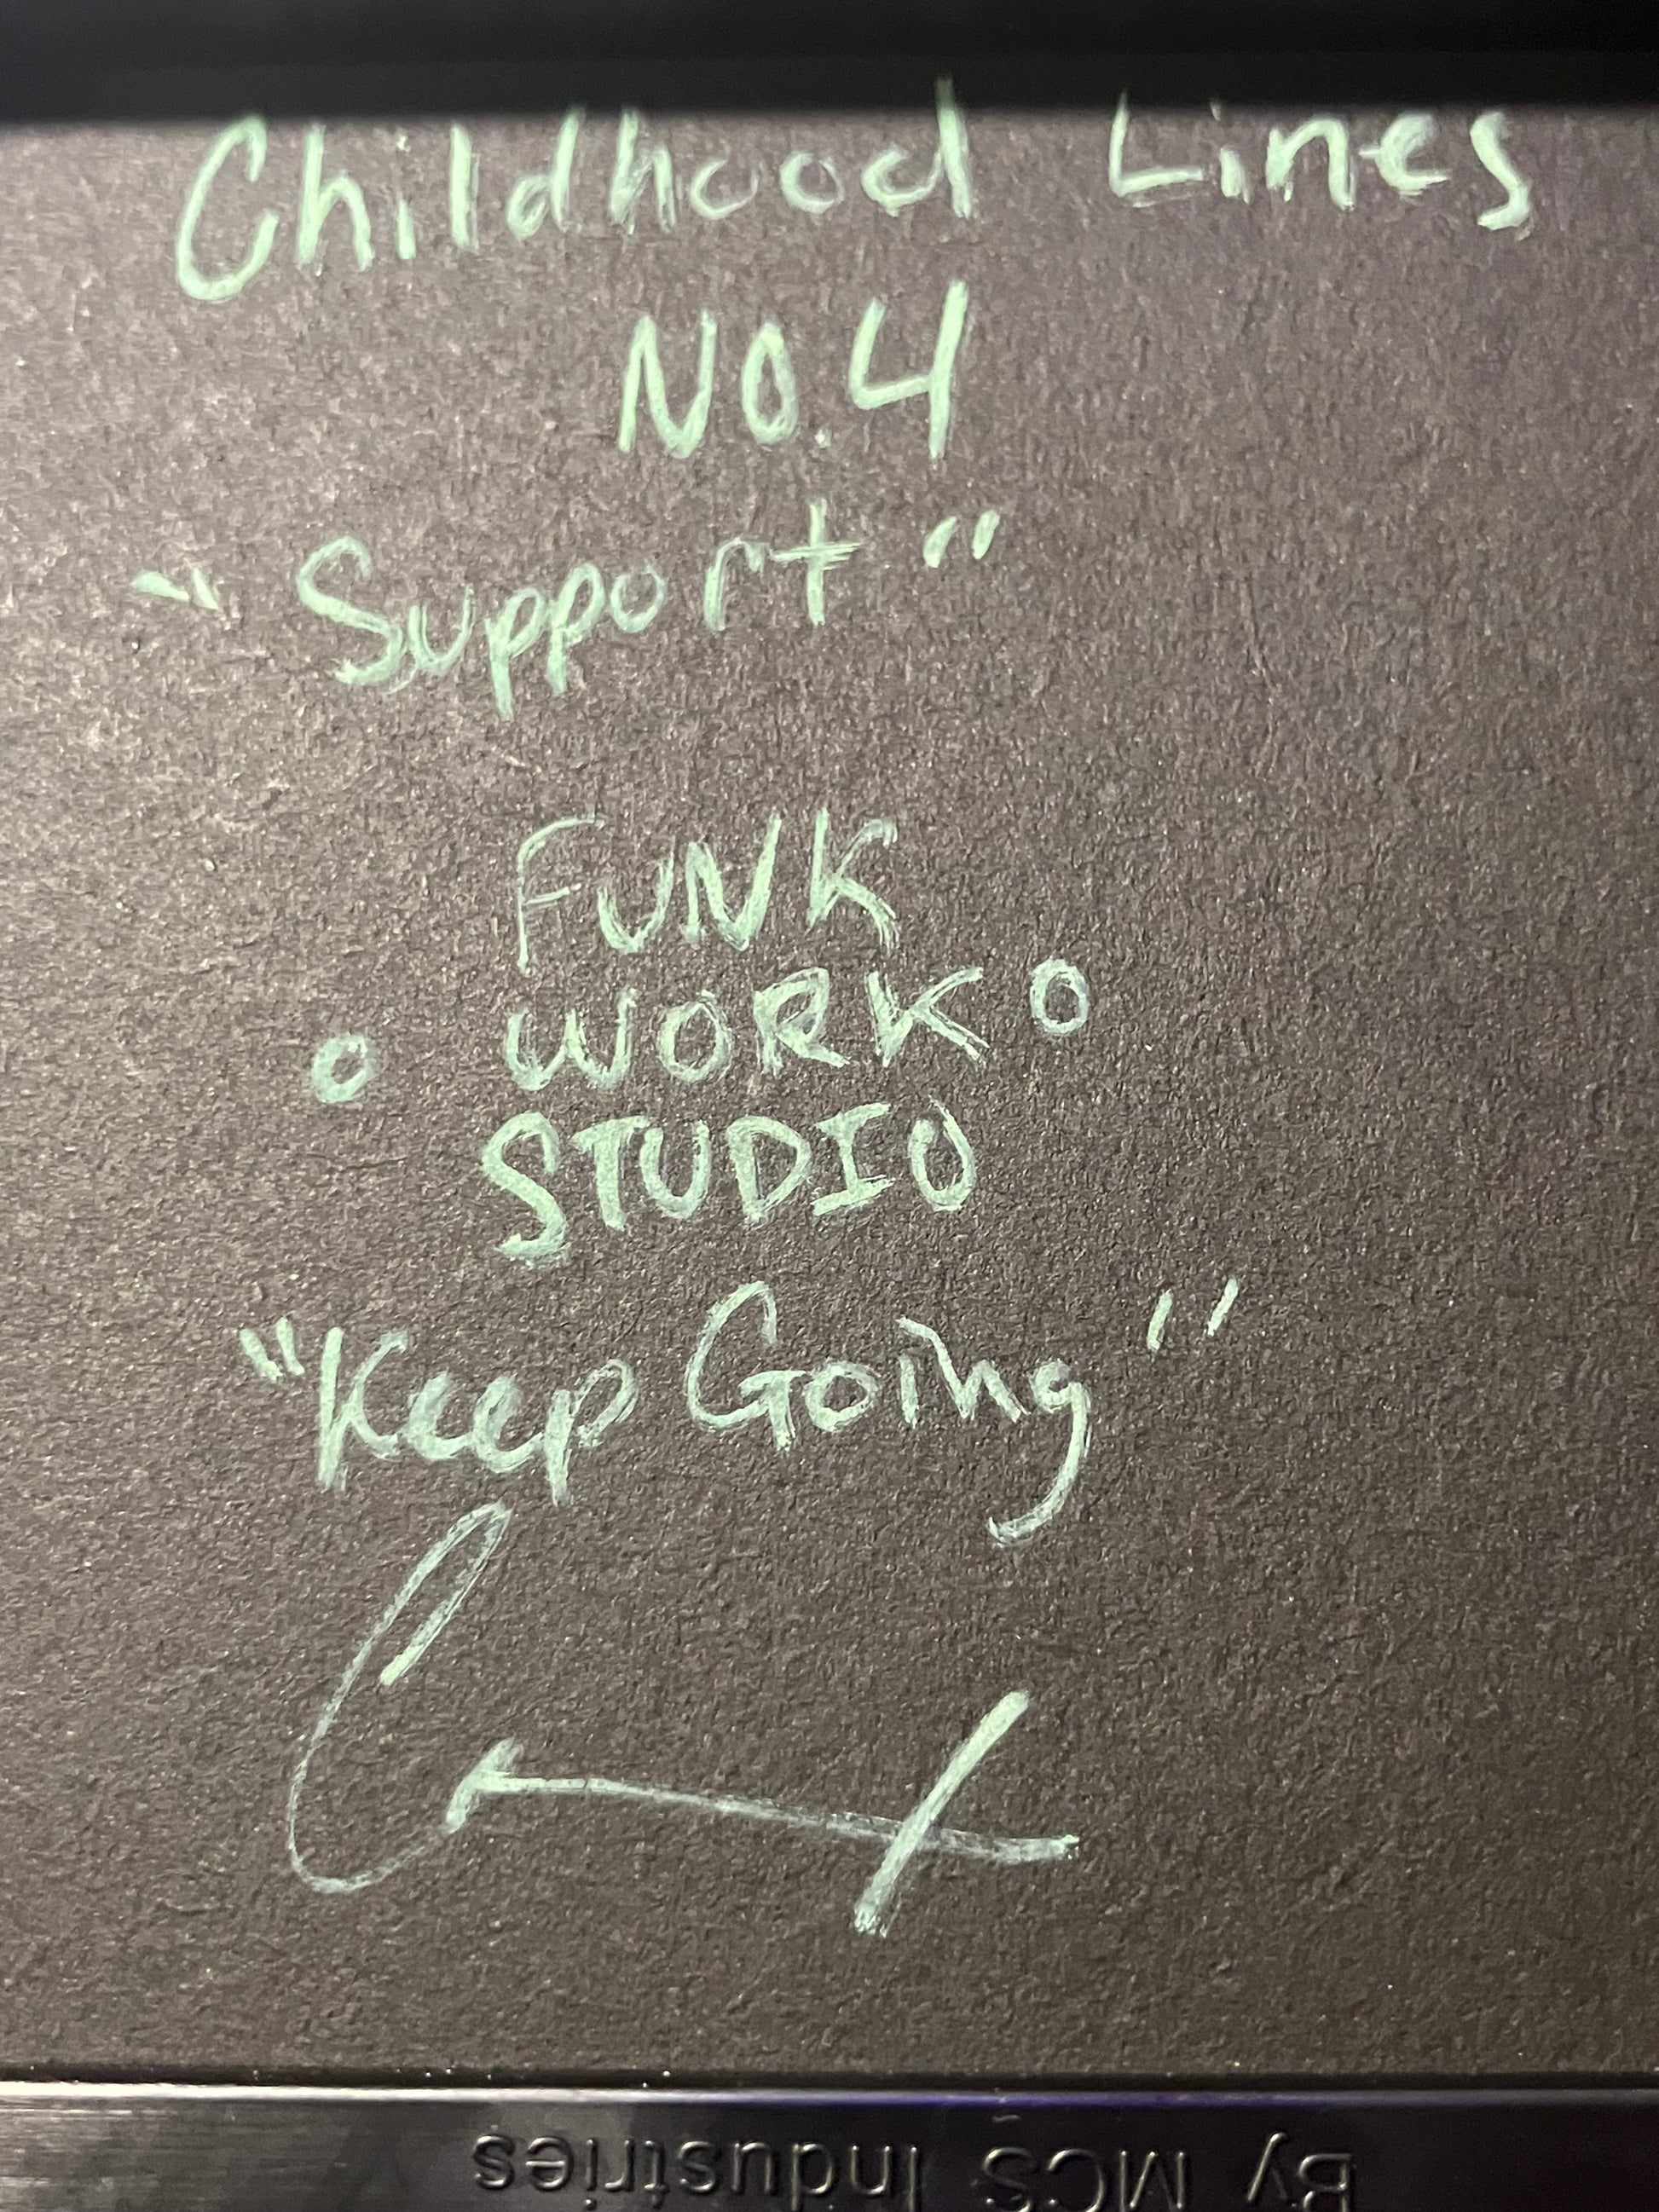 Childhood Lines
No.4
"Support"
FUNK
WORK
STUDIO
"Keep Going"
By MCS Industries